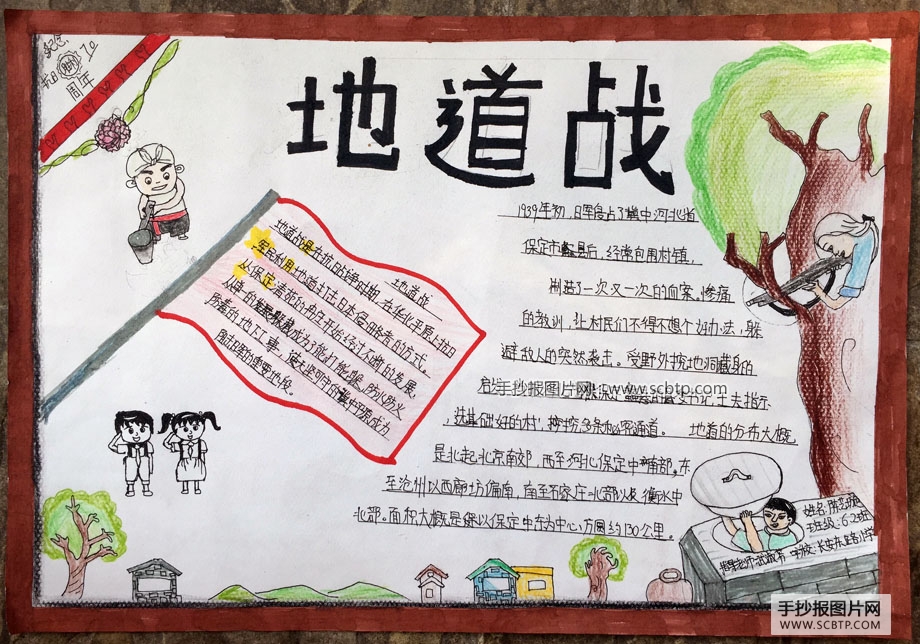 纪念
抗日 胜利 70
周年
地道战
地道战
地道战是在抗日战争时期,在华北平原上抗日
军民利用地道打击日本侵略者的方式。
从保定清苑的冉庄开始经过不断的发展,
从单一的躲藏成为了能打能躲、防水防火
防毒的地下工事,
1939年初,日军侵占了冀中河北省
保定市蠡县后,经常包围村镇,
制造了一次又一次的血案。惨痛
的教训,让村民们不得不想个好办法,躲
避敌人的突然袭击。受野外挖地洞藏身的
启
手抄报图片网 www.scbtp.com
书记,亡去指示
,找基础好的村,挖多条秘密通道。 地道的分布大概
是北起北京南郊,西至河北保定中部。东
至沧州以西廊坊偏南,南至石家庄北部以及衡水中
北部。面积大概是以保定中东为中心,方圆约130公里。
姓名:
班级:6.2班
学校:长安东路小学
手抄报图片网
WWW.SCBTP.COM